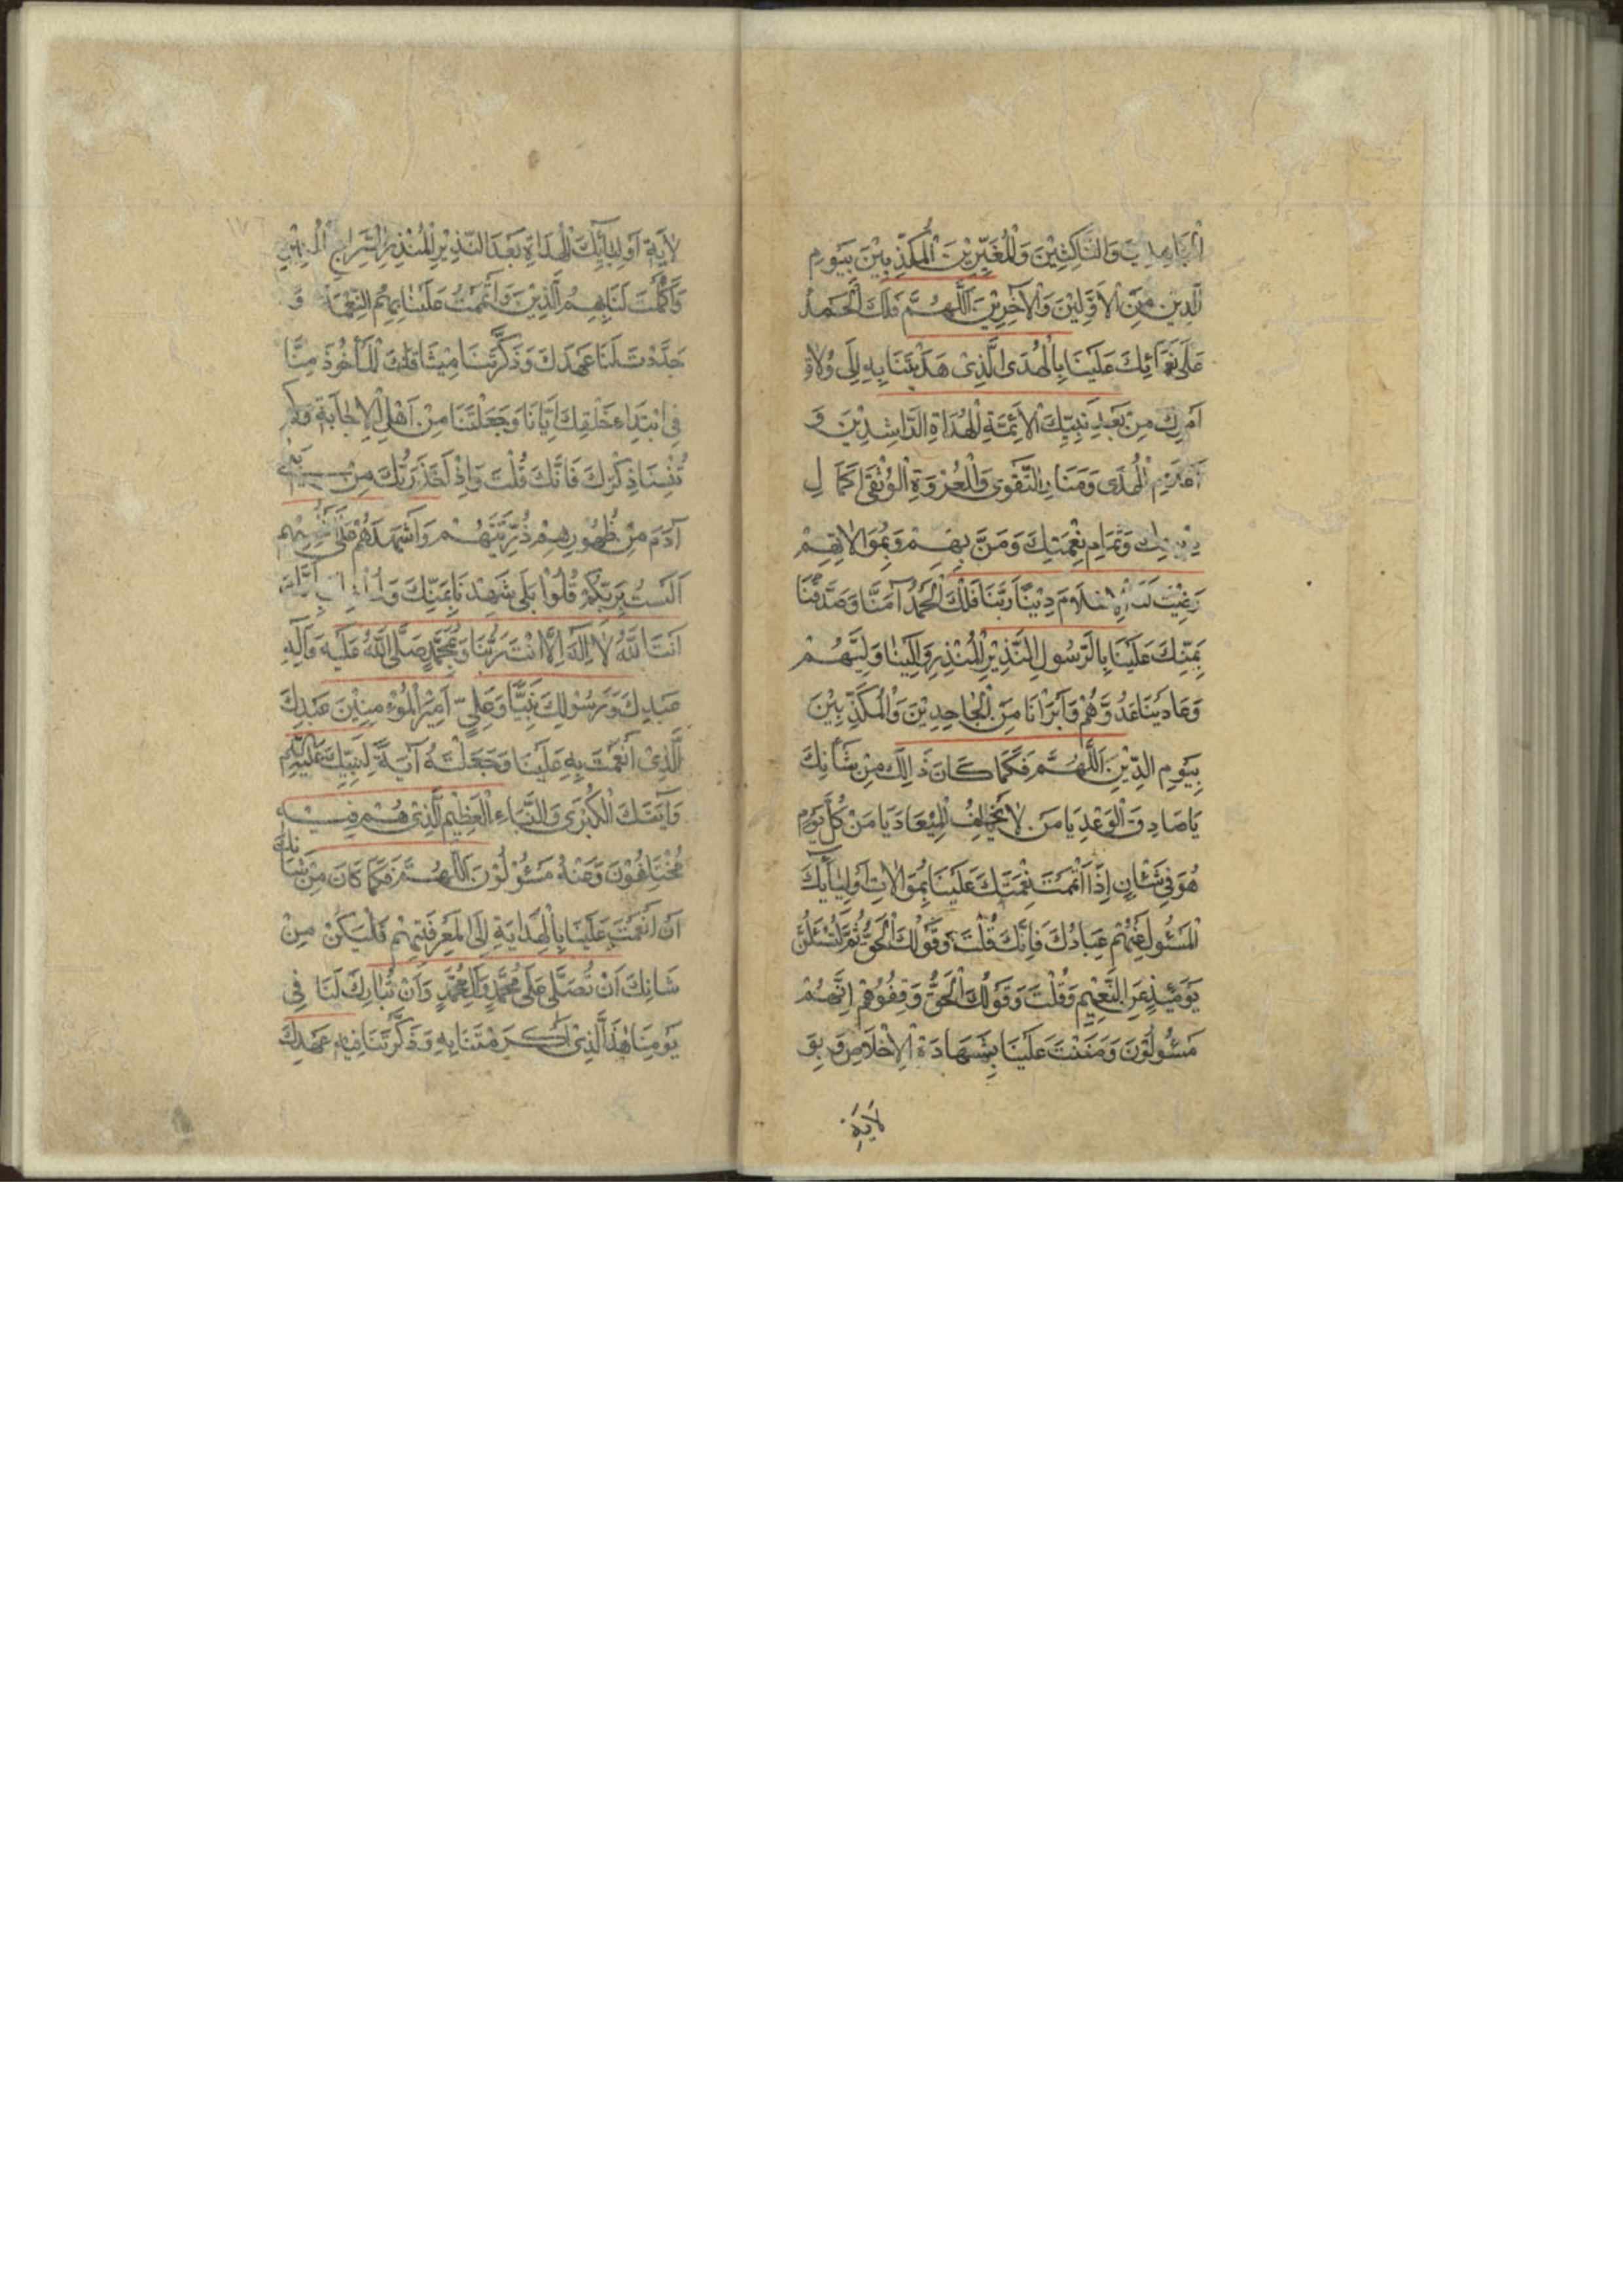 وَالنَّاكِثِيْنَ وَالْمُغَيِّرِيْنَ الْمُكَذِّبِيْنَ بِيَوْمِ
الدِّيْنِ مِنَ الْاَوَّلِيْنَ وَالْآخِرِيْنَ اَللّٰهُمَّ فَلَكَ الْحَمْدُ
عَلٰى نَعْمَائِكَ عَلَيْنَا بِالْهُدَى الَّذِىْ هَدَيْتَنَا بِهِ اِلٰى وُلَاةِ
اَمْرِكَ مِنْ بَعْدِ نَبِيِّكَ الْاَئِمَّةِ الْهُدَاةِ الرَّاشِدِيْنَ وَ
اَعْلَامِ الْهُدَى وَمَنَارِ التَّقْوٰى وَالْعُرْوَةِ الْوُثْقٰى وَكَمَالِ
دِيْنِكَ وَتَمَامِ نِعْمَتِكَ وَمَنْ بِهِمْ وَبِمُوَالَاتِهِمْ
رَضِيْتَ لَنَا الْاِسْلَامَ دِيْنًا رَبَّنَا فَلَكَ الْحَمْدُ آمَنَّا وَصَدَّقْنَا
بِمَنِّكَ عَلَيْنَا بِالرَّسُوْلِ النَّذِيْرِ الْمُنْذِرِ وَالَيْنَا وَلِيَّهُمْ
وَعَادَيْنَا عَدُوَّهُمْ وَاَبْرَاْنَا مِنَ الْجَاحِدِيْنَ وَالْمُكَذِّبِيْنَ
بِيَوْمِ الدِّيْنِ اَللّٰهُمَّ فَكَمَا كَانَ ذٰلِكَ مِنْ شَاْنِكَ
يَا صَادِقَ الْوَعْدِ يَا مَنْ لَا يُخْلِفُ الْمِيْعَادَ يَا مَنْ كُلَّ يَوْمٍ
هُوَ فِىْ شَاْنٍ اِذَا اَتْمَمْتَ نِعْمَتَكَ عَلَيْنَا بِمُوَالَاتِ اَوْلِيَائِكَ
الْمَسْئُوْلِ عَنْهُمْ عِبَادُكَ فَاِنَّكَ قُلْتَ وَقَوْلُكَ الْحَقُّ ثُمَّ لَتُسْئَلُنَّ
يَوْمَئِذٍ عَنِ النَّعِيْمِ وَقُلْتَ وَقَوْلُكَ الْحَقُّ وَقِفُوْهُمْ اِنَّهُمْ
مَسْئُوْلُوْنَ وَمَنَنْتَ عَلَيْنَا بِشَهَادَةِ الْاِخْلَاصِ وَبِوِ
لَايَةِ
لَايَةِ اَوْلِيَائِكَ الْهُدَاةِ بَعْدَ النَّذِيْرِ الْمُنْذِرِ السِّرَاجِ الْمُنِيْرِ
وَاَكْمَلْتَ لَنَا بِهِمُ الدِّيْنَ وَاَتْمَمْتَ عَلَيْنَا بِهِمُ النِّعْمَةَ وَ
جَدَّدْتَ لَنَا عَهْدَكَ وَذَكَّرْتَنَا مِيْثَاقَكَ الْمَاْخُوْذَ مِنَّا
فِى ابْتِدَاءِ خَلْقِكَ اِيَّانَا وَجَعَلْتَنَا مِنْ اَهْلِ الْاِجَابَةِ وَلَمْ
تُنْسِنَا ذِكْرَكَ فَاِنَّكَ قُلْتَ وَاِذْ اَخَذَ رَبُّكَ مِنْ بَنِىْ
آدَمَ مِنْ ظُهُوْرِهِمْ ذُرِّيَّتَهُمْ وَاَشْهَدَهُمْ عَلٰى اَنْفُسِهِمْ
اَلَسْتُ بِرَبِّكُمْ قَالُوْا بَلٰى شَهِدْنَا بِمَنِّكَ وَلُطْفِكَ بِاَنَّكَ
اَنْتَ اللّٰهُ لَا اِلٰهَ اِلَّا اَنْتَ رَبُّنَا وَمُحَمَّدٌ صَلَّى اللّٰهُ عَلَيْهِ وَآلِهِ
عَبْدِكَ وَرَسُوْلِكَ نَبِيُّنَا وَعَلِىٍّ اَمِيْرِ الْمُؤْمِنِيْنَ عَبْدِكَ
الَّذِىْ اَنْعَمْتَ بِهِ عَلَيْنَا وَجَعَلْتَهُ آيَةً لِنَبِيِّكَ عَلَيْهِ
وَآيَتَكَ الْكُبْرٰى وَالنَّبَاءِ الْعَظِيْمِ الَّذِىْ هُمْ فِيْهِ
مُخْتَلِفُوْنَ وَعَنْهُ مَسْئُوْلُوْنَ اَللّٰهُمَّ فَكَمَا كَانَ مِنْ شَانِكَ
اَنْ اَنْعَمْتَ عَلَيْنَا بِالْهِدَايَةِ اِلَى الْمَعْرِفَتِهِمْ فَلْيَكُنْ مِنْ
شَانِكَ اَنْ تُصَلِّىَ عَلٰى مُحَمَّدٍ وَآلِ مُحَمَّدٍ وَاَنْ تُبَارِكَ لَنَا فِى
يَوْمِنَا هٰذَا الَّذِىْ اَكْرَمْتَنَا بِهِ وَذَكَّرْتَنَا فِيْهِ عَهْدِكَ